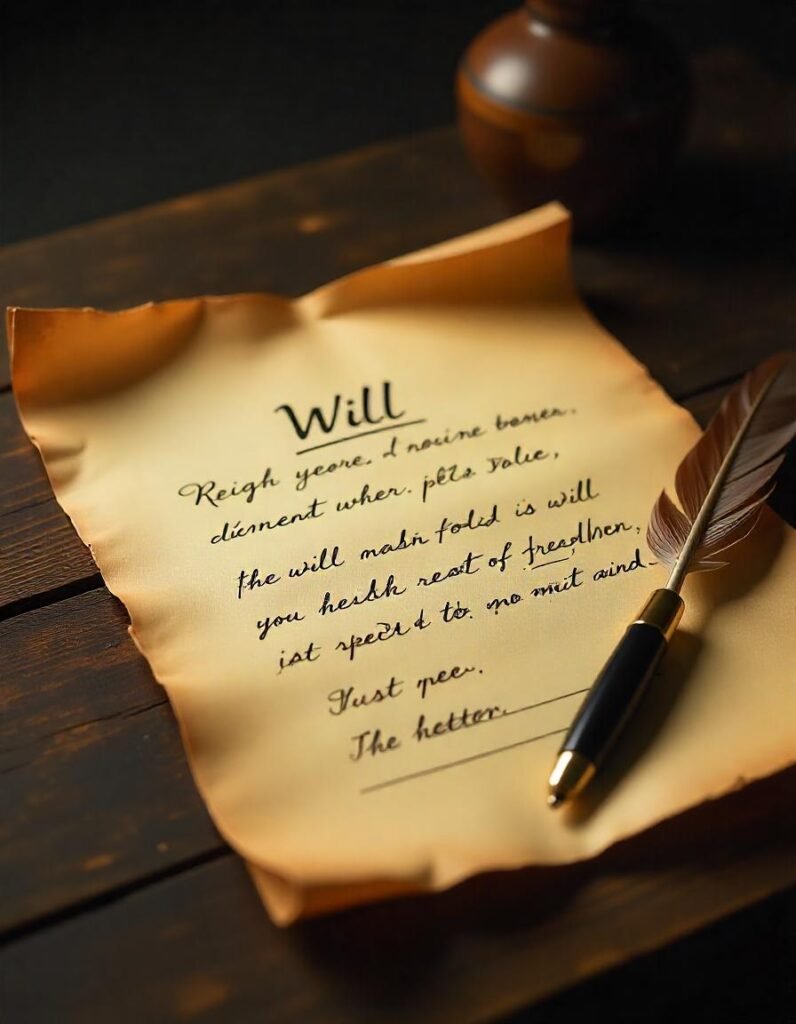 Will
Reigh yeore. I nocine bomen.
diement wher. pets Dolue,
the will masin folid is will
you heslek reat of freadlhen,
ist spect d to. mo muit aind-
Just pee.
The hettor.